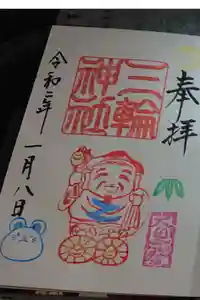 奉拝
三輪
神社
令和二年
一月八日